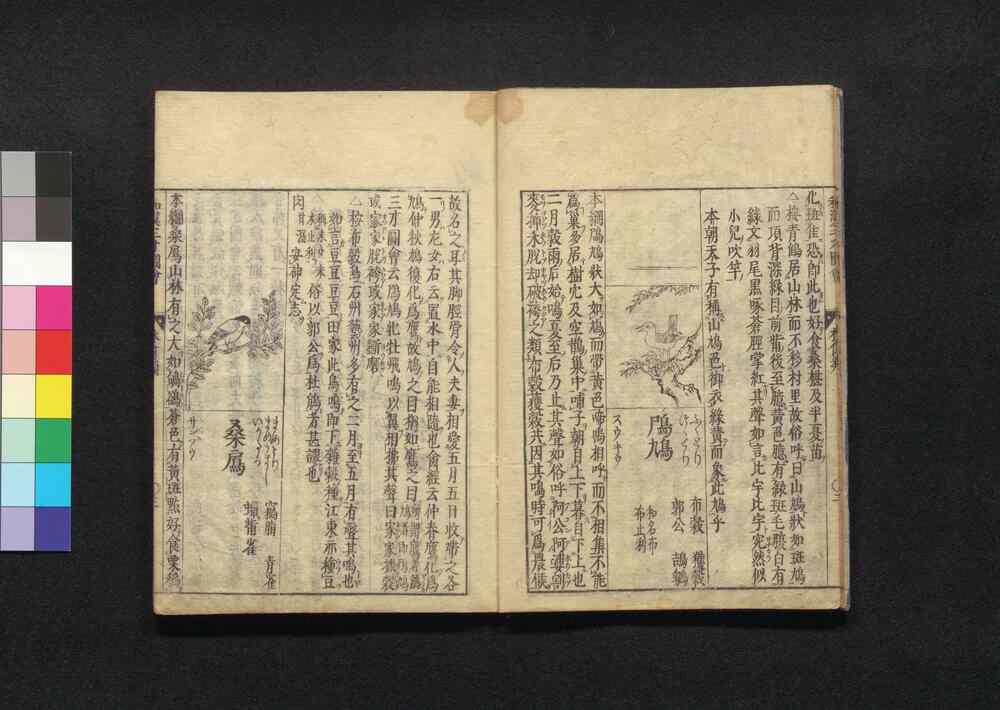 化斑隹恐即此也好食桑椹及半夏苗
△按青鳩居山林而不移村里故俗呼曰山鳩狀如斑鳩
而項背深綠目前觜後至臆黃色臆有綠斑毛腹白有
綠文羽尾黑啄蒼脛掌紅其聲如言比宇比宇宛然似
小兒吹竿
本朝天子有稱山鳩色御衣綠黃而象此鳩乎
鳲鳩
ふふどり
スウキウ
布穀 穫穀
郭公 鴶鵴
和名布
布止利
本綱鳲鳩狀大如鳩而带黃色啼鳴相呼而不相集不能
爲巢多居樹穴及空鵲巢中哺子朝自上下暮自下上也
二月穀雨后始鳴夏至后乃止其聲如俗呼阿公阿婆割
麥揷禾脫却破袴之類布穀穫穀共因其鳴時可爲農候
故名之耳其脚脛骨令人夫妻相愛五月五日收帶之各
一男左女右云置水中自能相隨也禽經云仲春鷹化爲
鳩仲秋鳩復化爲鷹故鳩之目猶如鷹之目
三才圖會云鳲鳩牝牡飛鳴以翼相拂其聲曰家家撒穀
或家家脫袴或家家斲磨
△按布穀鳥石州藝州多有之二月至五月有聲其鳴也
如言豆豆豆豆田家此鳥鳴即下雜穀種江東亦種豆
俗以郭公爲杜鵑者甚謬也
肉 甘溫 安神定志
桑鳸
サンフウ
竊脂 青雀
蠟觜雀
本綱桑鳸山林有之大如鴝鵒蒼色有黃斑點好食粟稻